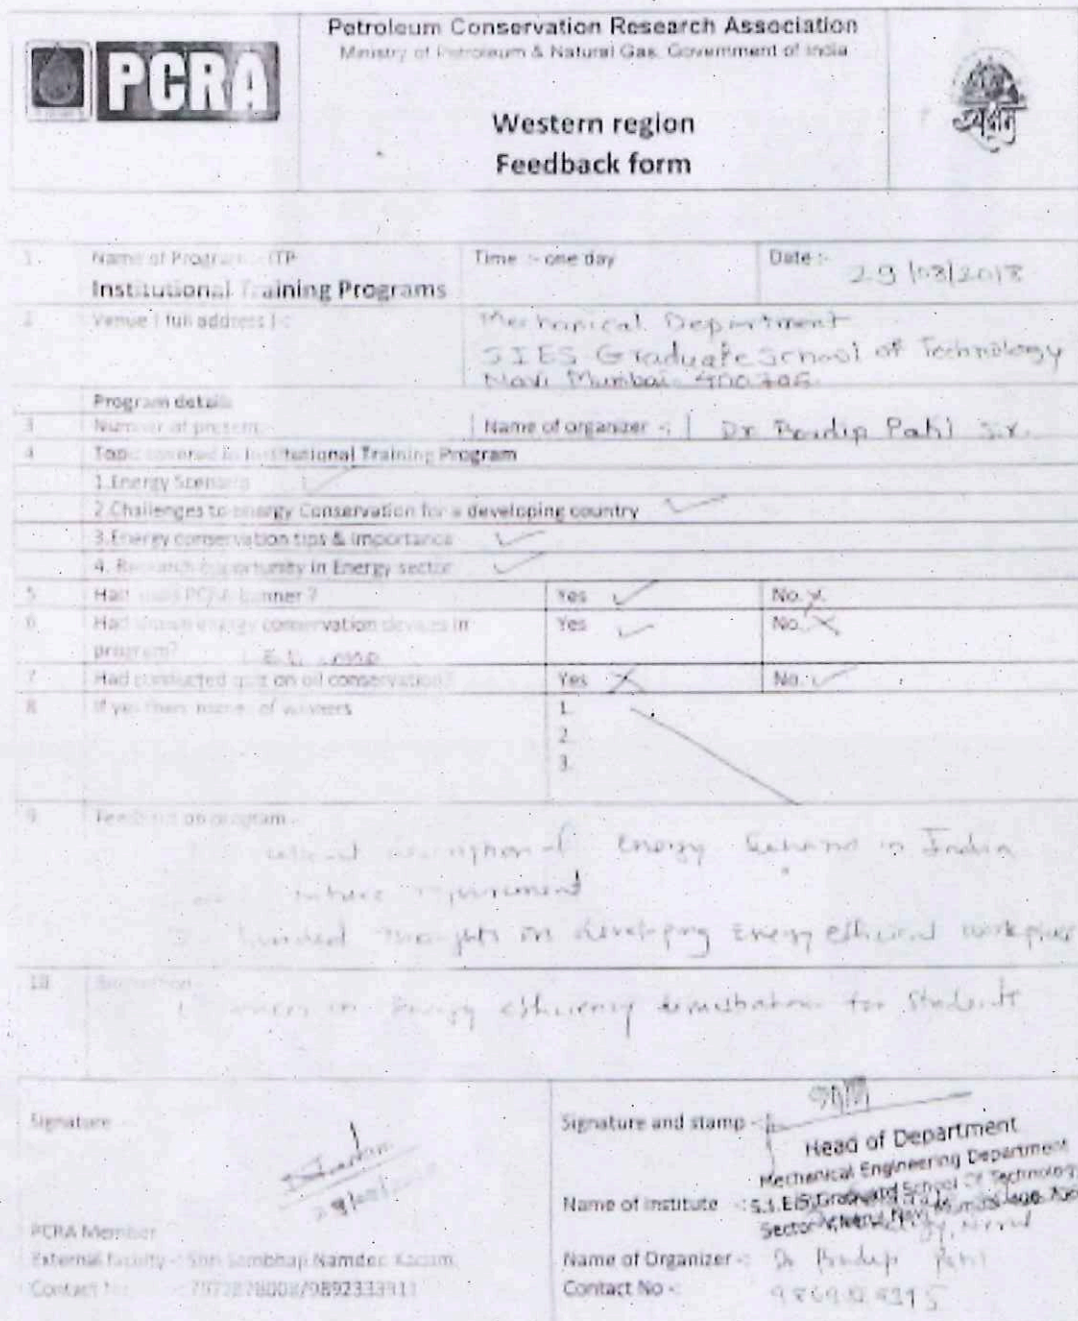 PCRA
Petroleum Conservation Research Association
Ministry of Petroleum & Natural Gas, Government of India
Western region
Feedback form
1. Name of Program :- ITP
Institutional Training Programs
Time :- one day
Date :- 29/08/2018
2 Venue ( full address ) :-
Mechanical Department
SIES Graduate School of Technology
Navi Mumbai 400706
Program details
3 Number of present:-
Name of organizer :- Dr Pradip Patil Sir.
4 Topic covered in Institutional Training Program
1.Energy Scenario
2.Challenges to energy Conservation for a developing country
3.Energy conservation tips & importance
4. Research opportunity in Energy sector
5 Had used PCRA banner ? Yes No.
6 Had shown energy conservation devices in Yes No.
program?
7 Had conducted quiz on oil conservation? Yes No.
8 If yes then name of winners 1.
2.
3.
9. Feedback on program -
Energy in India
future requirement
thoughts on developing Energy efficient workplace
10
in Energy efficiency for Students
Signature
Signature and stamp -:
Head of Department
Mechanical Engineering Department
Name of institute -: S.I.E.S Graduate School Of Technology
Sector V, Nerul, Navi Mumbai
PCRA Member
External faculty -: Shri Sambhaji Namdeo Kadam
Name of Organizer -: Dr Pradip Patil
Contact No -: /9892333911
Contact No -: